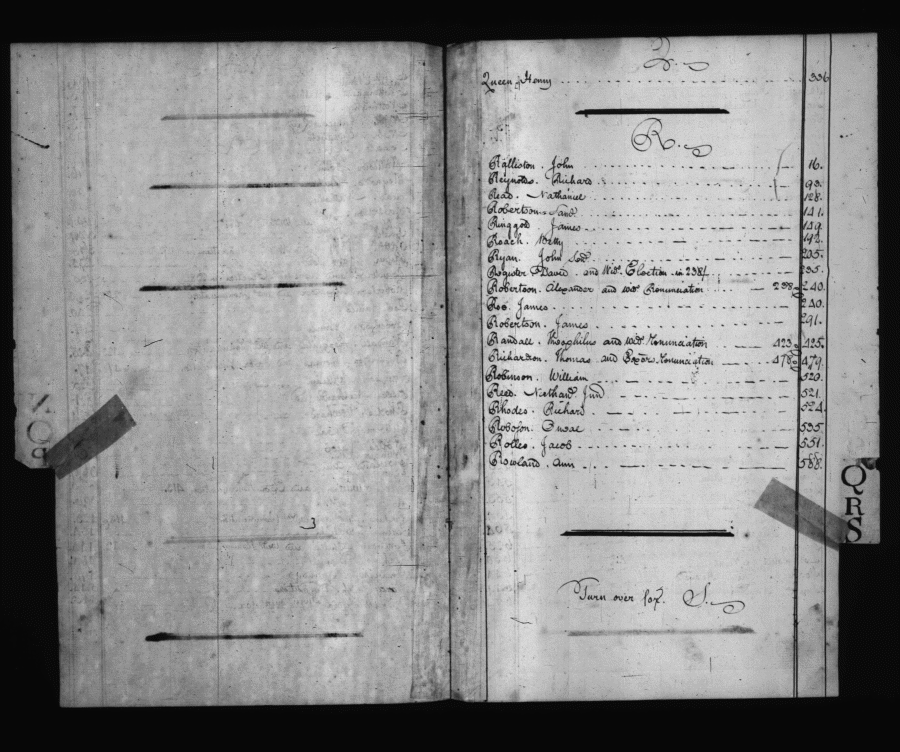 Q.
Queen Henry 336
R.
Ralliston. John 16.
Reynolds. Richard 93.
Read. Nathaniel 128.
Robertson. 141.
Ringgold James 149.
Roach. 192.
Ryan. John Senr. 205.
Register David. and Wids. Election in 238/ 235.
Robertson. Alexander and Wids Renunciation 238 & 240.
Roe. James 240.
Robertson. James 291.
Randall. Theophilus and Wids. Renunciation 423 & 425.
Richardson. Thomas and Exors. Renunciation 478 & 479.
Robinson. William 520.
Reed. Nathan. Junr. 521.
Rhodes Richard 524.
Robson. 535.
Rolles. Jacob 551.
Rowland. Ann 588.
Turn over for. S.
Q
R
S